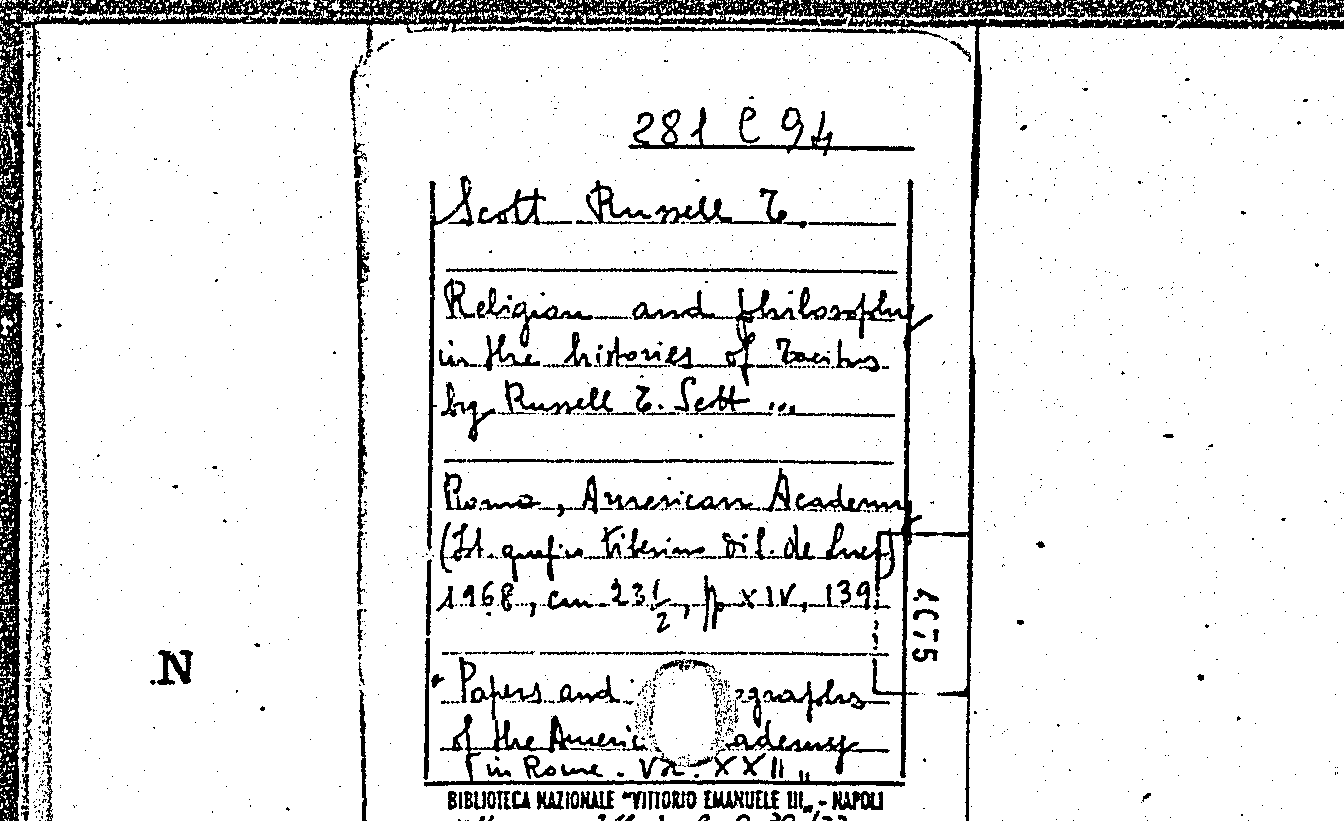 281 C 94
Scott Russell T.
Religion and philosophy
in the histories of Tacitus
by Russell T. Scott ...
Roma, American Academy
(St. grafico Tiberino di L. de Luca)
1968, cm 23 1/2, pp XIV, 139
Papers and graphs
of the Americ ademy
in Rome. Vol. XXII"
BIBLIOTECA NAZIONALE "VITTORIO EMANUELE III„ - NAPOLI
AC75
N